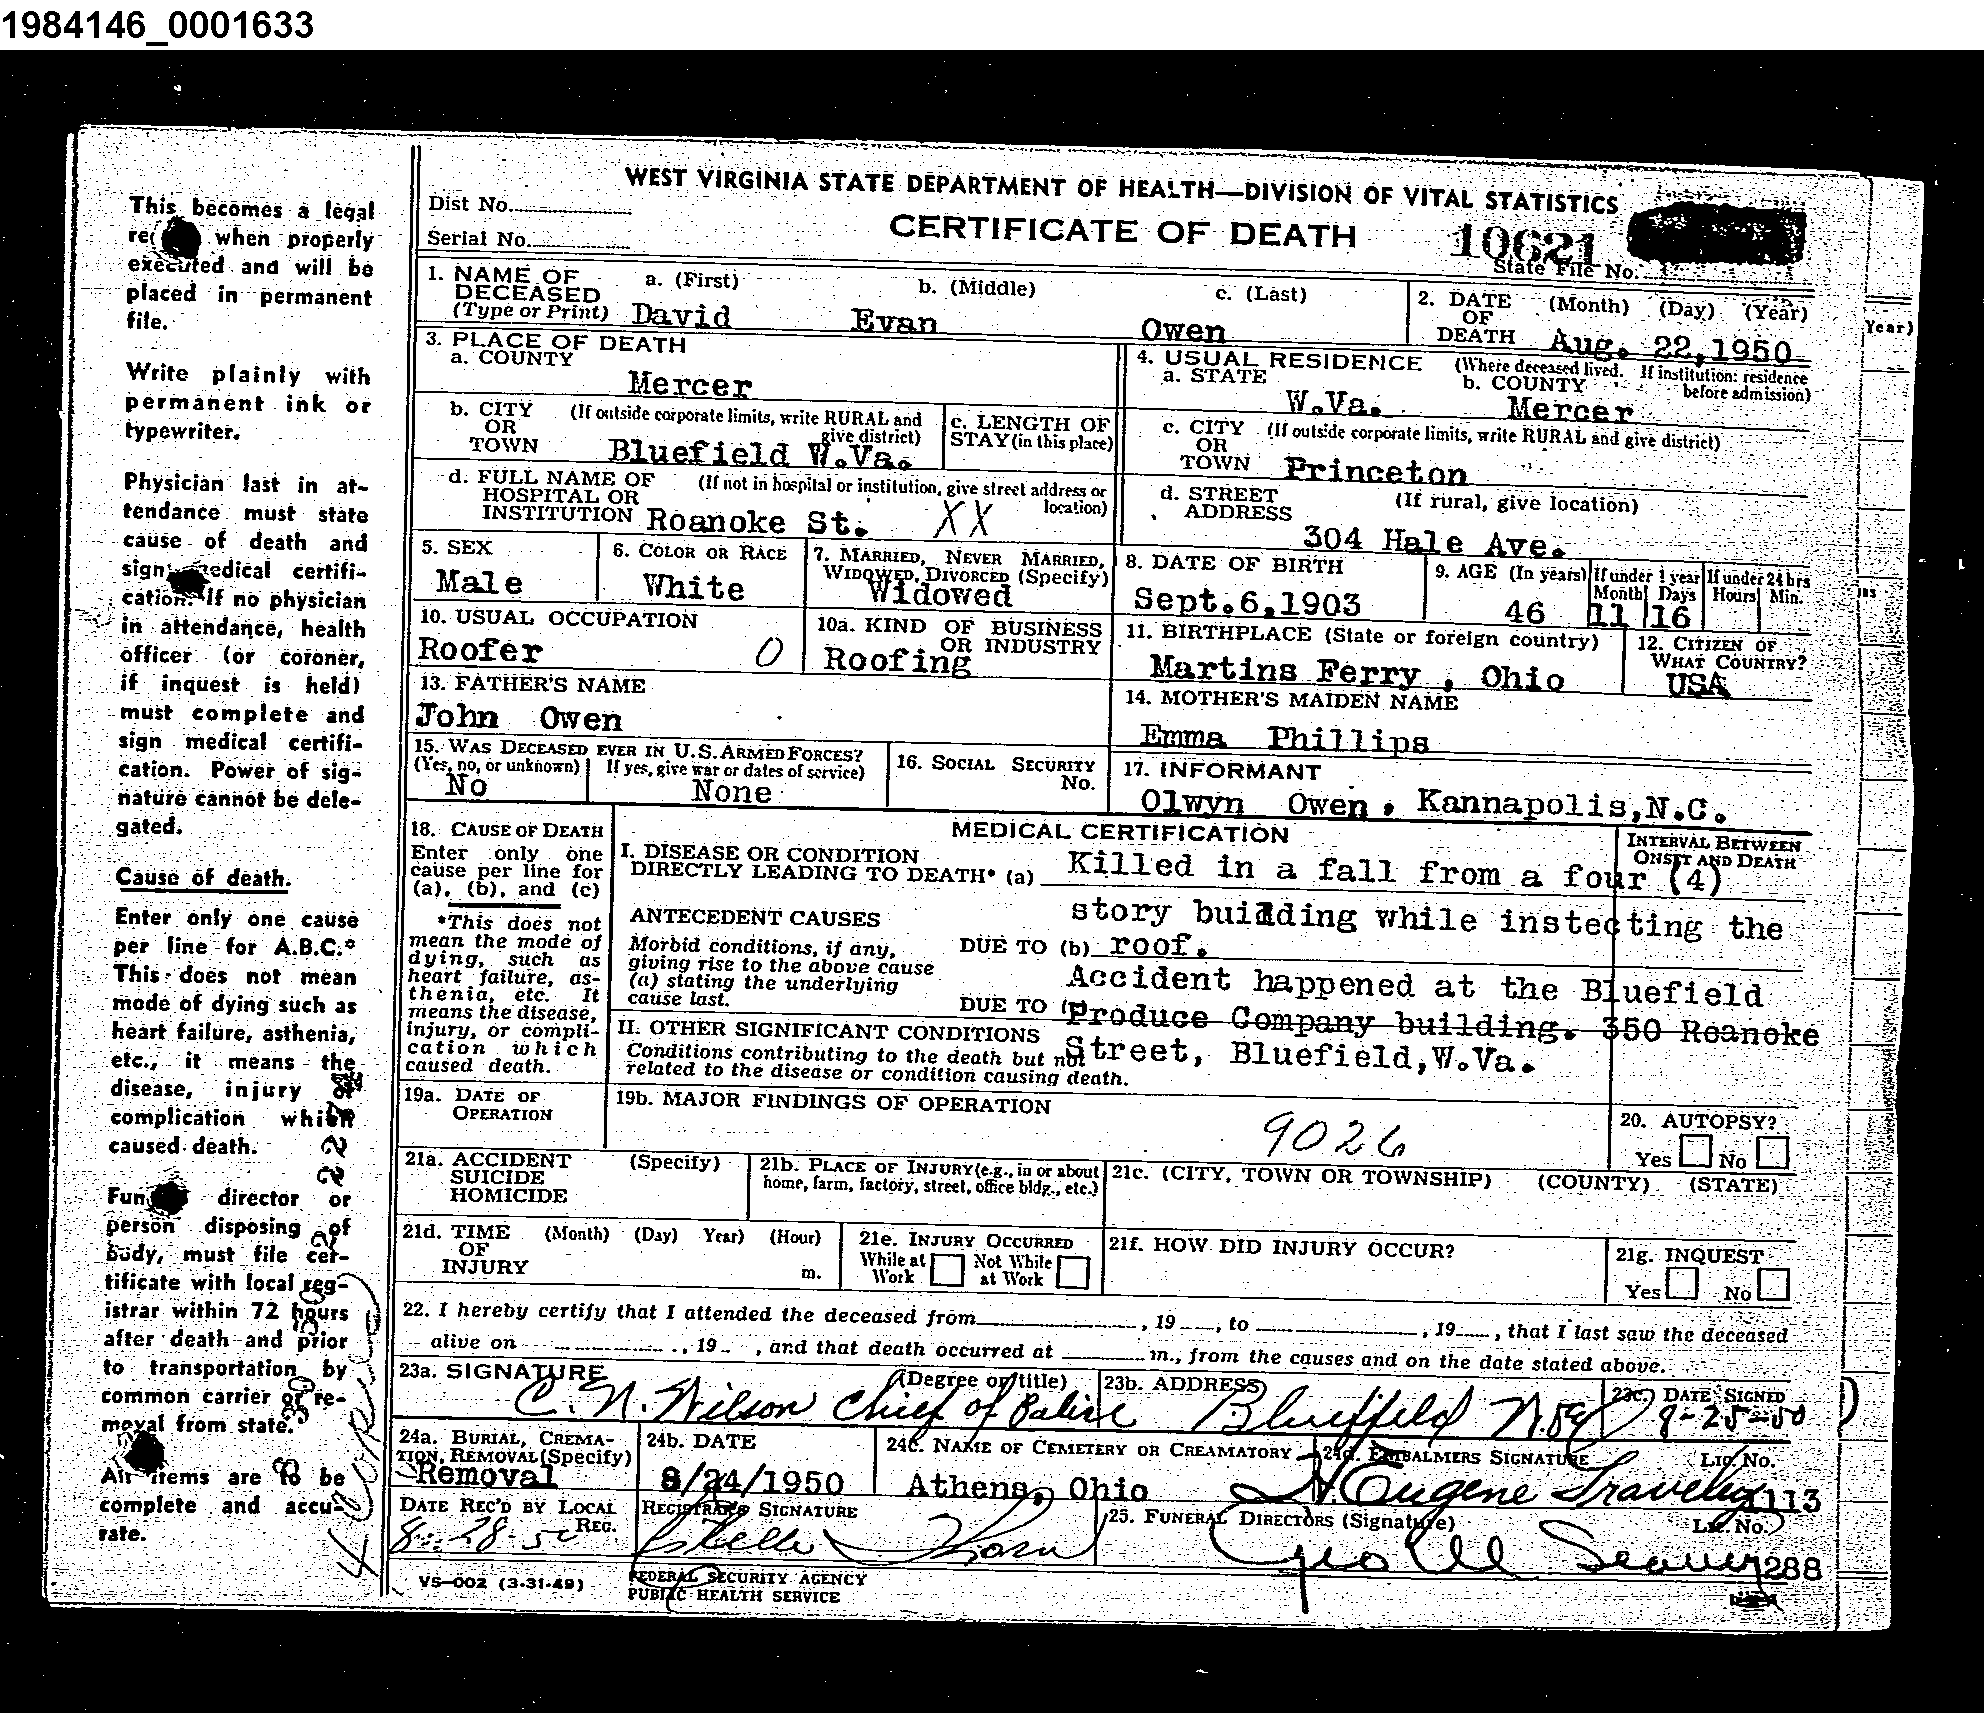 1984146_0001633
This becomes a legal
when properly
executed and will be
placed in permanent
file.
Write plainly with
permanent ink or
typewriter.
Physician last in at-
tendance must state
cause of death and
sign medical certifi-
cation. If no physician
in attendance, health
officer (or coroner,
if inquest is held)
must complete and
sign medical certifi-
cation. Power of sig-
nature cannot be dele-
gated.
Cause of death.
Enter only one cause
per line for A.B.C.*
This does not mean
mode of dying such as
heart failure, asthenia,
etc., it means the
disease, injury or
complication which
caused death.
director or
person disposing of
body, must file cer-
tificate with local reg-
istrar within 72 hours
after death and prior
to transportation by
common carrier or re-
moval from state.
All items are to be
complete and accu-
rate.
WEST VIRGINIA STATE DEPARTMENT OF HEALTH—DIVISION OF VITAL STATISTICS
Dist No.
CERTIFICATE OF DEATH
Serial No.
10621
State File No.
1. NAME OF DECEASED (Type or Print) a. (First) b. (Middle) c. (Last)
David Evan Owen
2. DATE OF DEATH (Month) (Day) (Year)
Aug. 22,1950
Year)
3. PLACE OF DEATH
a. COUNTY
Mercer
4. USUAL RESIDENCE (Where deceased lived. If institution: residence before admission)
a. STATE b. COUNTY
W.Va. Mercer
b. CITY OR TOWN (If outside corporate limits, write RURAL and give district)
Bluefield W.Va.
c. LENGTH OF STAY (in this place)
c. CITY OR TOWN (If outside corporate limits, write RURAL and give district)
Princeton
d. FULL NAME OF HOSPITAL OR INSTITUTION (If not in hospital or institution, give street address or location)
Roanoke St. XX
d. STREET ADDRESS (If rural, give location)
304 Hale Ave.
5. SEX
Male
6. COLOR OR RACE
White
7. MARRIED, NEVER MARRIED, WIDOWED, DIVORCED (Specify)
Widowed
8. DATE OF BIRTH
Sept.6,1903
9. AGE (In years)
46
If under 1 year Months Days
11 16
If under 24 hrs Hours Min.
10. USUAL OCCUPATION
Roofer 0
10a. KIND OF BUSINESS OR INDUSTRY
Roofing
11. BIRTHPLACE (State or foreign country)
Martins Ferry , Ohio
12. CITIZEN OF WHAT COUNTRY?
USA
13. FATHER'S NAME
John Owen
14. MOTHER'S MAIDEN NAME
Emma Phillips
15. WAS DECEASED EVER IN U.S. ARMED FORCES?
(Yes, no, or unknown) If yes, give war or dates of service)
No None
16. SOCIAL SECURITY No.
17. INFORMANT
Olwyn Owen, Kannapolis,N.C.
18. CAUSE OF DEATH
Enter only one
cause per line for
(a), (b), and (c)
*This does not
mean the mode of
dying, such as
heart failure, as-
thenia, etc. It
means the disease,
injury, or compli-
cation which
caused death.
MEDICAL CERTIFICATION
INTERVAL BETWEEN ONSET AND DEATH
I. DISEASE OR CONDITION
DIRECTLY LEADING TO DEATH* (a) Killed in a fall from a four (4)
ANTECEDENT CAUSES story building while instecting the
Morbid conditions, if any,
giving rise to the above cause
(a) stating the underlying
cause last.
DUE TO (b) roof.
Accident happened at the Bluefield
DUE TO ( Produce Company building. 350 Roanoke
II. OTHER SIGNIFICANT CONDITIONS
Conditions contributing to the death but not Street, Bluefield,W.Va.
related to the disease or condition causing death.
19a. DATE OF OPERATION
19b. MAJOR FINDINGS OF OPERATION
9026
20. AUTOPSY?
Yes No
21a. ACCIDENT SUICIDE HOMICIDE (Specify)
21b. PLACE OF INJURY (e.g., in or about home, farm, factory, street, office bldg., etc.)
21c. (CITY, TOWN OR TOWNSHIP) (COUNTY) (STATE)
21d. TIME OF INJURY (Month) (Day) Year) (Hour) m.
21e. INJURY OCCURRED
While at Work Not While at Work
21f. HOW DID INJURY OCCUR?
21g. INQUEST
Yes No
22. I hereby certify that I attended the deceased from , 19 , to , 19 , that I last saw the deceased
alive on , 19 , and that death occurred at m., from the causes and on the date stated above.
23a. SIGNATURE (Degree or title)
C. N. Wilson Chief of Police
23b. ADDRESS
Bluefield W.Va
23c. DATE SIGNED
8-25-50
24a. BURIAL, CREMA-
TION, REMOVAL (Specify)
Removal
24b. DATE
8/24/1950
24c. NAME OF CEMETERY OR CREAMATORY
Athens, Ohio
24d. EMBALMERS SIGNATURE Lic. No.
H. Eugene 2113
DATE REC'D BY LOCAL REG.
8-28-50
REGISTRAR'S SIGNATURE
25. FUNERAL DIRECTORS (Signature) Lic. No.
Geo W Seaver 288
VS-002 (3-31-49)
FEDERAL SECURITY AGENCY
PUBLIC HEALTH SERVICE